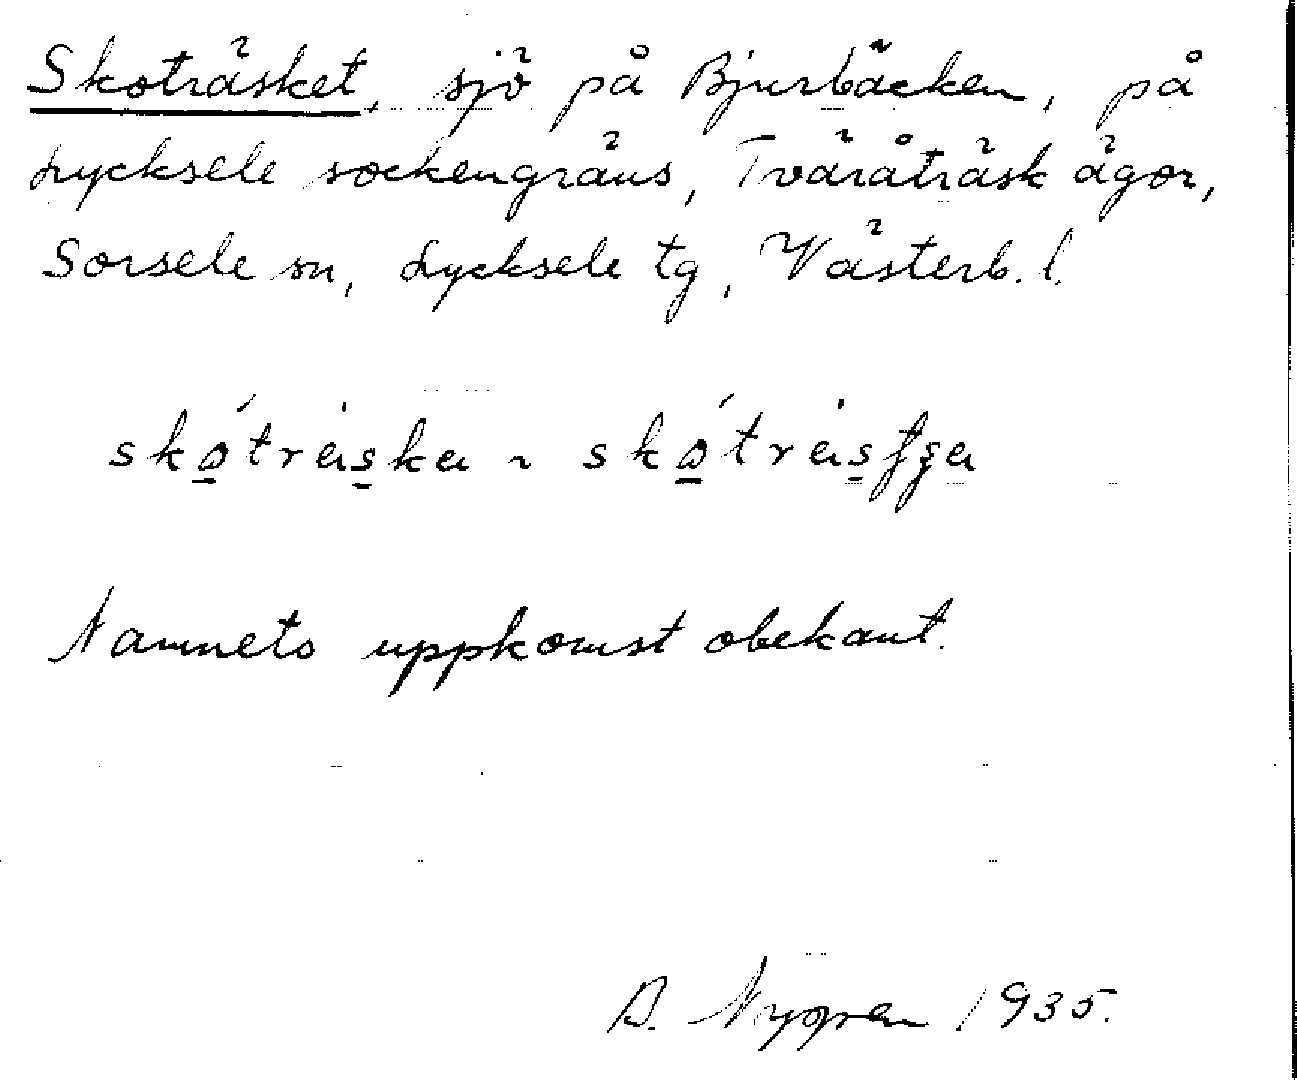 Skoträsket, sjö på Bjurbäcken, på
Lycksele sockengräns, Tväråträsk ägor,
Sorsele sn, Lycksele tg, Västerb. l.
Namnets uppkomst obekant.
A. Nygren 1935.